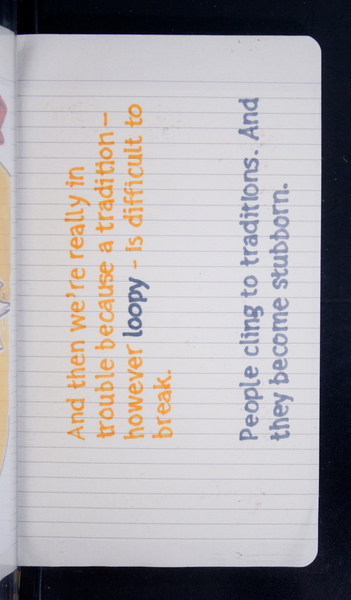 And then we're really in
trouble because a tradition –
however loopy – is difficult to
break.
People cling to traditions. And
they become stubborn.